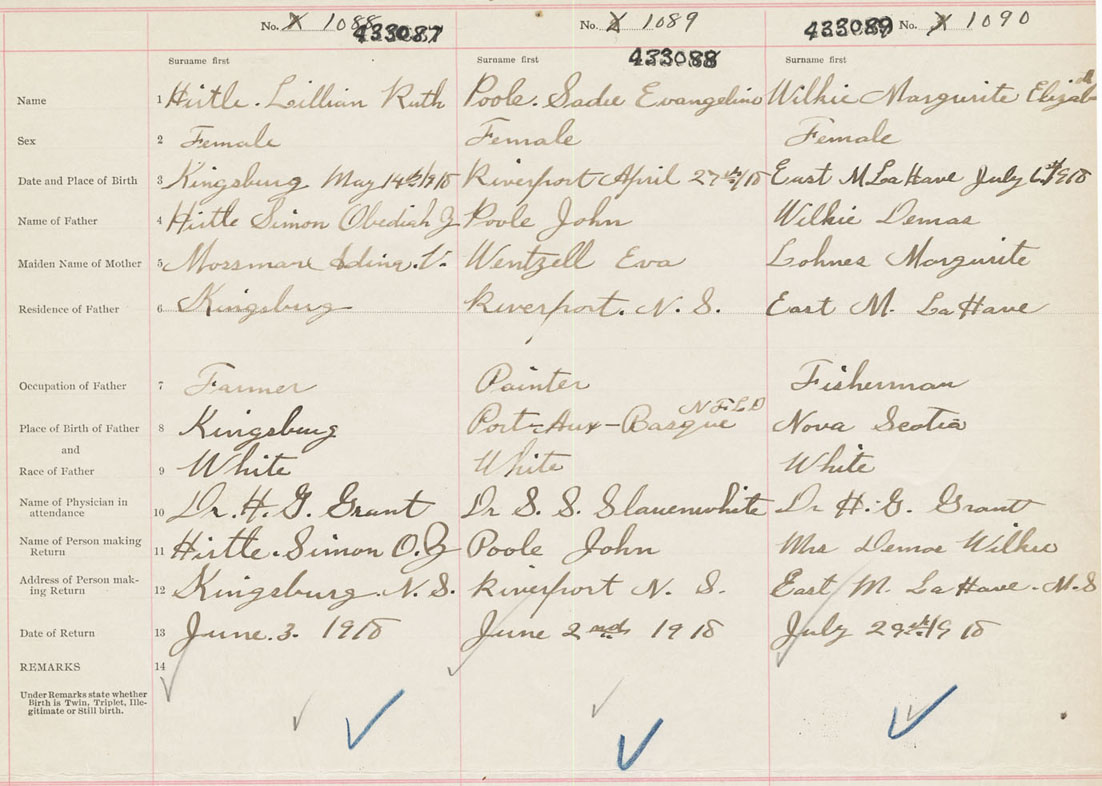 No. X 1088 No. X 1089 No. X 1090
433087 433088 433089
Surname first Surname first Surname first
Name 1 Hirtle. Lillian Ruth Poole. Sadie Evangeline Wilkie Margurite Elizabth
Sex 2 Female Female Female
Date and Place of Birth 3 Kingsburg May 14th/1918 Riverport April 27th/18 East M LaHave July 6th/1918
Name of Father 4 Hirtle Simon Obediah Z Poole John Wilkie Demas
Maiden Name of Mother 5 Mossman V. Wentzell Eva Lohnes Margurite
Residence of Father 6 Kingsburg Riverport. N. S. East M. LaHave
Occupation of Father 7 Farmer Painter Fisherman
Place of Birth of Father 8 Kingsburg Port-Aux-Basque NFLD Nova Scotia
and
Race of Father 9 White White White
Name of Physician in
attendance 10 Dr. H. G. Grant Dr S. S. Slauenwhite Dr H. G. Grant
Name of Person making
Return 11 Hirtle. Simon O. Z Poole John Mrs Demas Wilkie
Address of Person mak-
ing Return 12 Kingsburg. N. S. Riverport N. S. East M. LaHave. N. S
Date of Return 13 June. 3. 1918 June 2nd 1918 July 29th/1918
REMARKS 14
Under Remarks state whether
Birth is Twin, Triplet, Ille-
gitimate or Still birth.